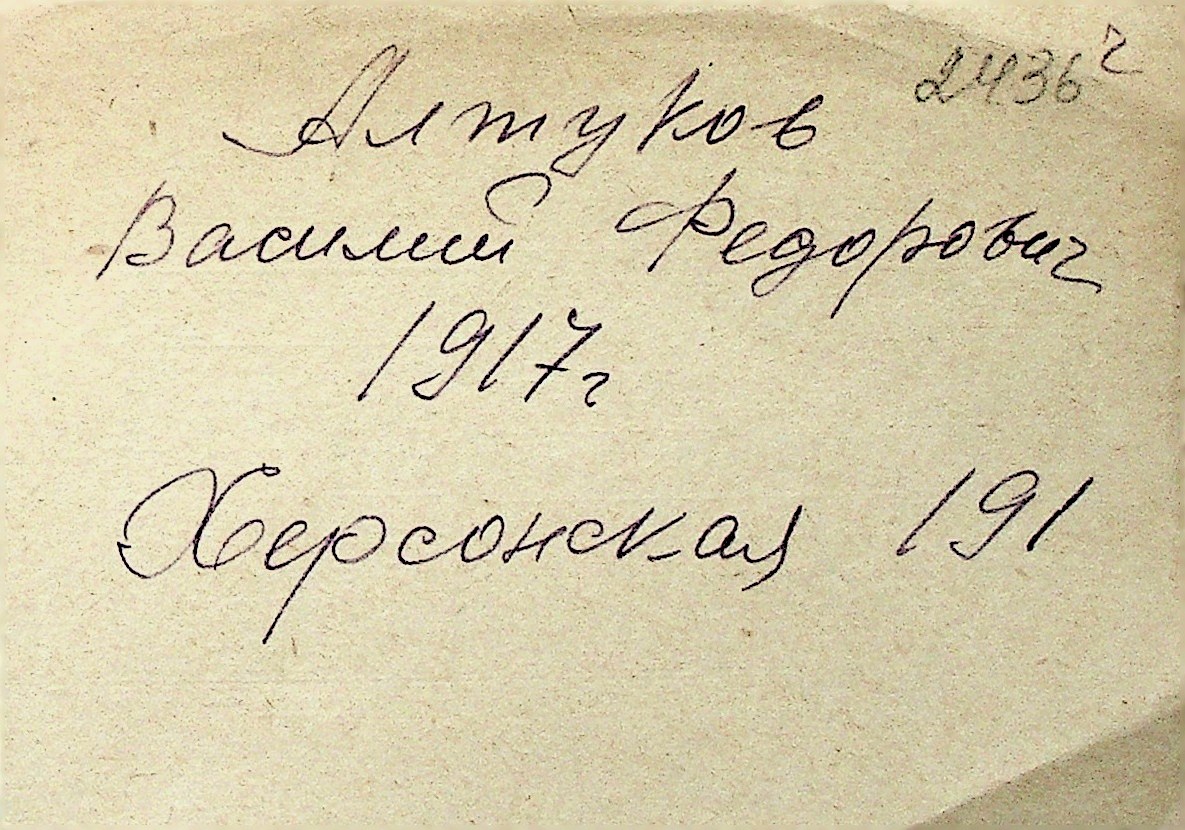 2436 г
Алтуков
Василий Федорович
1917г
Херсонская 191